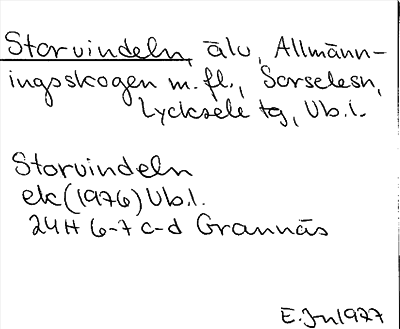 Storvindeln, älv, Allmänn-
ingsskogen m.fl., Sorselesn,
Lycksele tg, Vb.l.
Storvindeln
ek (1976) Vb.l.
24H 6-7 c-d Grannäs
E.Jn 1977